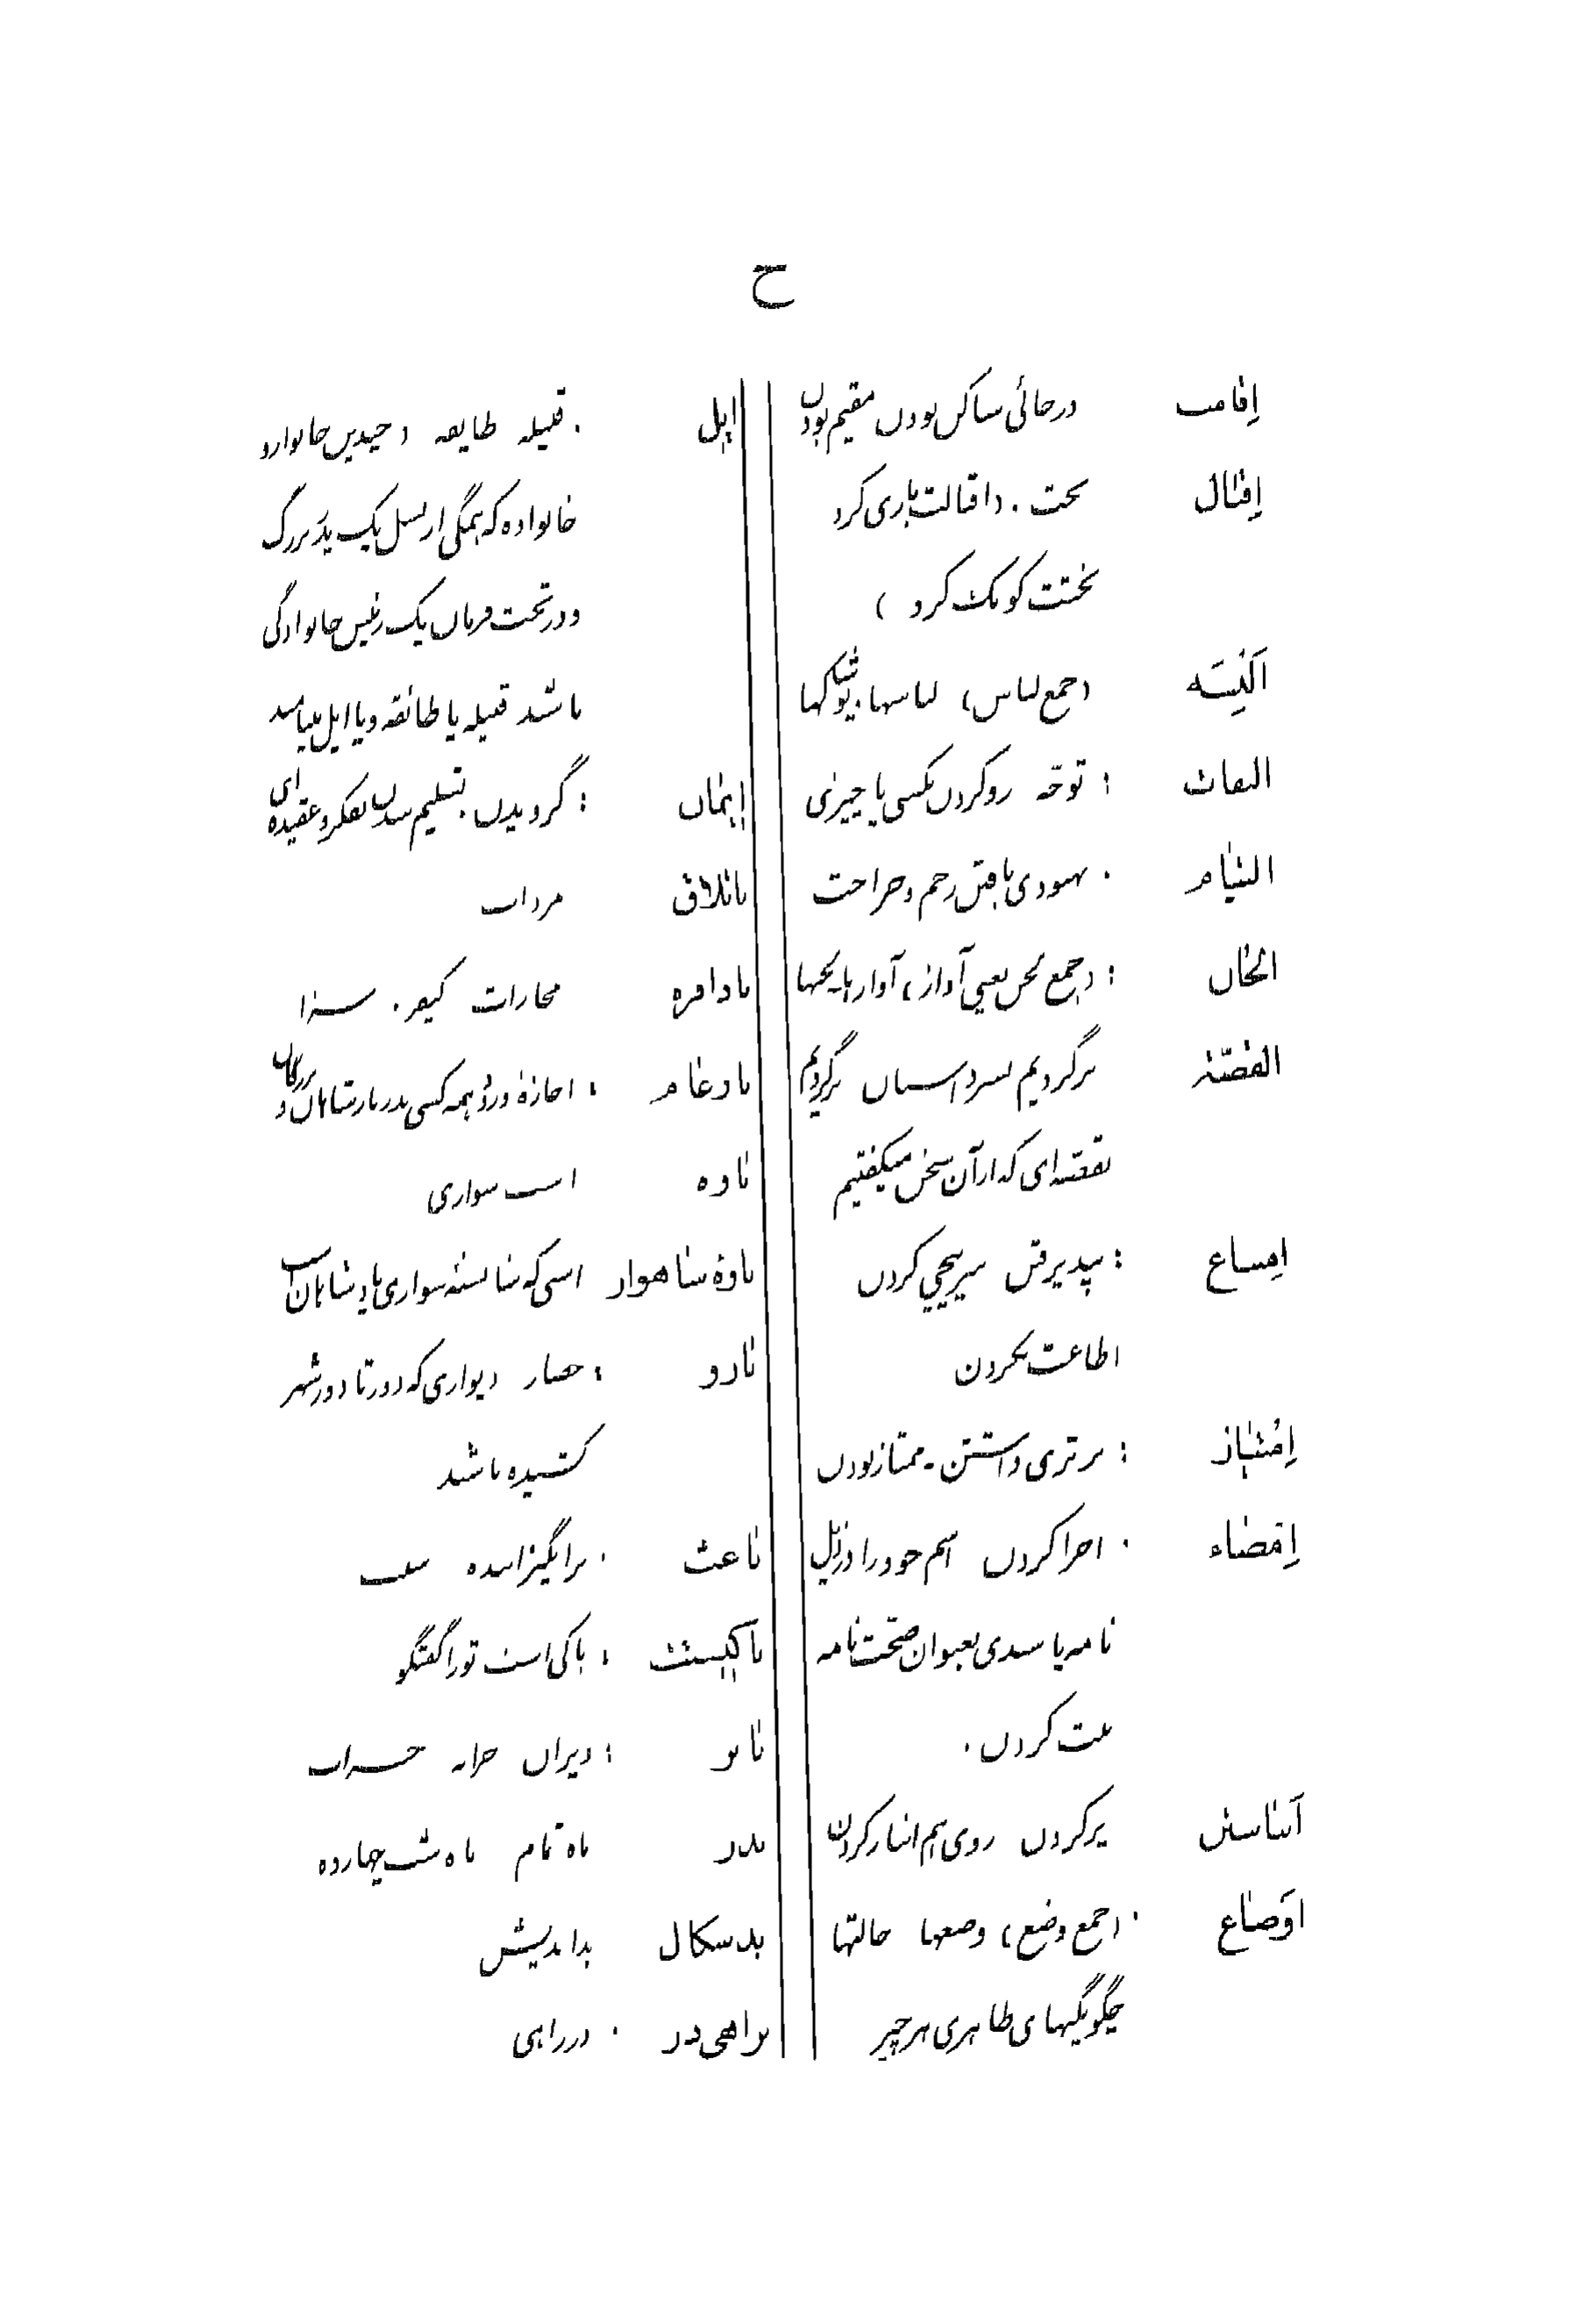 ح
اِقامت : درجائی ساکن بودن مقیم بودن
اِقبال : بخت . (اقبالت یاری کرد
بختت کومک کرد )
اَلبِسَه : (جمع لباس) لباسها . پوشاکها
التفات : توجّه رو کردن بکسی یا چیزی
التیام . بهبودی یافتن زخم و جراحت
الحان : (جمع لحن یعنی آواز) آوازها . لحنها
القصّه برگردیم بسر داستان برگردیم
بقصّه‌ای که از آن سخن میگفتیم
امتناع : نپذیرفتن سرپیچی کردن
اطاعت نکردن
اِمتیاز : برتری داشتن - ممتاز بودن
اِمضاء . اجرا کردن اسم خود را در ذیل
نامه یا سندی بعنوان صحّت نامه
ثبت کردن .
اَنباشتن پر کردن روی هم انبار کردن
اوَضاع . (جمع وضع) وضعها حالتها
چگونگیهای ظاهری هر چیز
ایل . قبیله طایفه (چندین خانوار و
خانواده که همگی از نسل یک پدَر بزرگ
و در تحت فرمان یک رئیس خانوادگی
باشند قبیله یا طائفه و یا ایل مینامند
ایمان : گرویدن . تسلیم شدن بفکر و عقیده‌ای
باتلاق مرداب
بادافره مجازات کیفر . سزا
بارعام : اجازهٔ ورود همه کسی بدربار شاهان و بزرگان
باره اسب سواری
بارهٔ شاهوار اسبی که شایسته سواری پادشاهان است
بارو : حصار دیواری که دور تا دور شهر
کشیده باشند
باعث . برانگیزاننده سبب
باکیستت : با کی است تو را گفتگو
بایر : ویران خرابه خراب
بدر ماه تمام ماه شب چهارده
بدسگال بداندیش
براهی در . در راهی